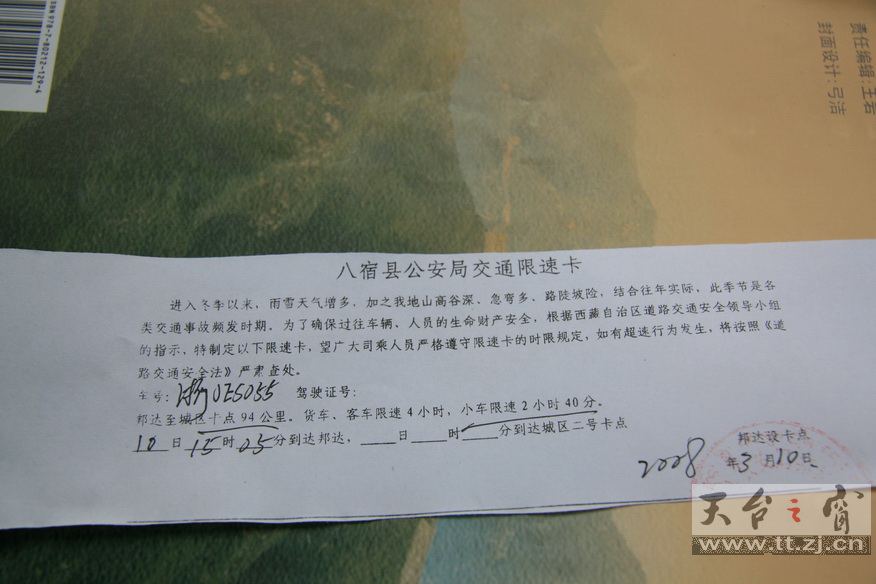 ISBN 978-7-80212-129-4
责任编辑:王若
封面设计:弓洁
八宿县公安局交通限速卡
进入冬季以来，雨雪天气增多，加之我地山高谷深、急弯多、路陡坡险，结合往年实际，此季节是各
类交通事故频发时期。为了确保过往车辆、人员的生命财产安全，根据西藏自治区道路交通安全领导小组
的指示，特制定以下限速卡，望广大司乘人员严格遵守限速卡的时限规定，如有超速行为发生，将按照《道
路交通安全法》严肃查处。
车号: 浙 驾驶证号:
邦达至城区卡点 94 公里。货车、客车限速 4 小时，小车限速 2 小时 40 分。
10 日 15 时 05 分到达邦达，____日____时____分到达城区二号卡点
邦达设卡点
2008 年 3 月 10 日
天台之窗
www.tt.zj.cn